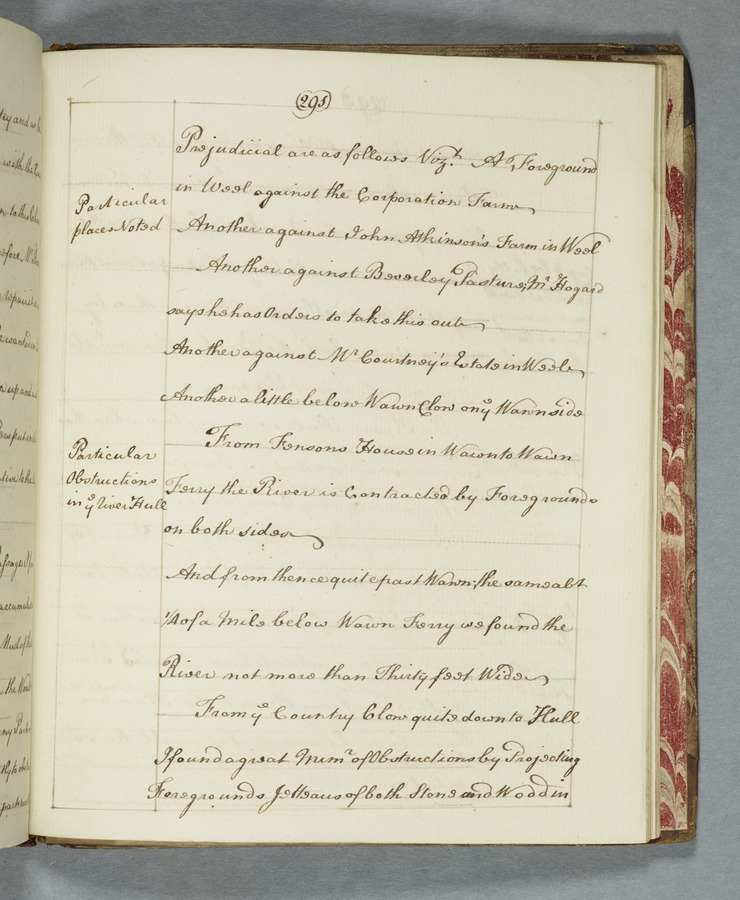 295
Prejudicial are as follows Vizt. A Foreground
in Weel against the Corporation Farm
Particular
places Noted
Another against John Atkinson's Farm in Weel
Another against Beverley Pasture, Mr Hogard
says he has Orders to take this out
Another against Mr Courtney's Estate in Weel
Another a little below Wawn Clow on ye Wawn side
From Fensons House in Wawn to Wawn
Particular
Obstructions
in ye River Hull
Ferry the River is Contracted by Foregrounds
on both sides
And from thence quite past Wawn; the same abt
1/4 of a Mile below Wawn Ferry we found the
River not more than Thirty feet Wide
From ye Country Clow quite down to Hull
I found a great Numr of Obstructions by Projecting
Foregrounds Jetteaus of both Stone and Wood in